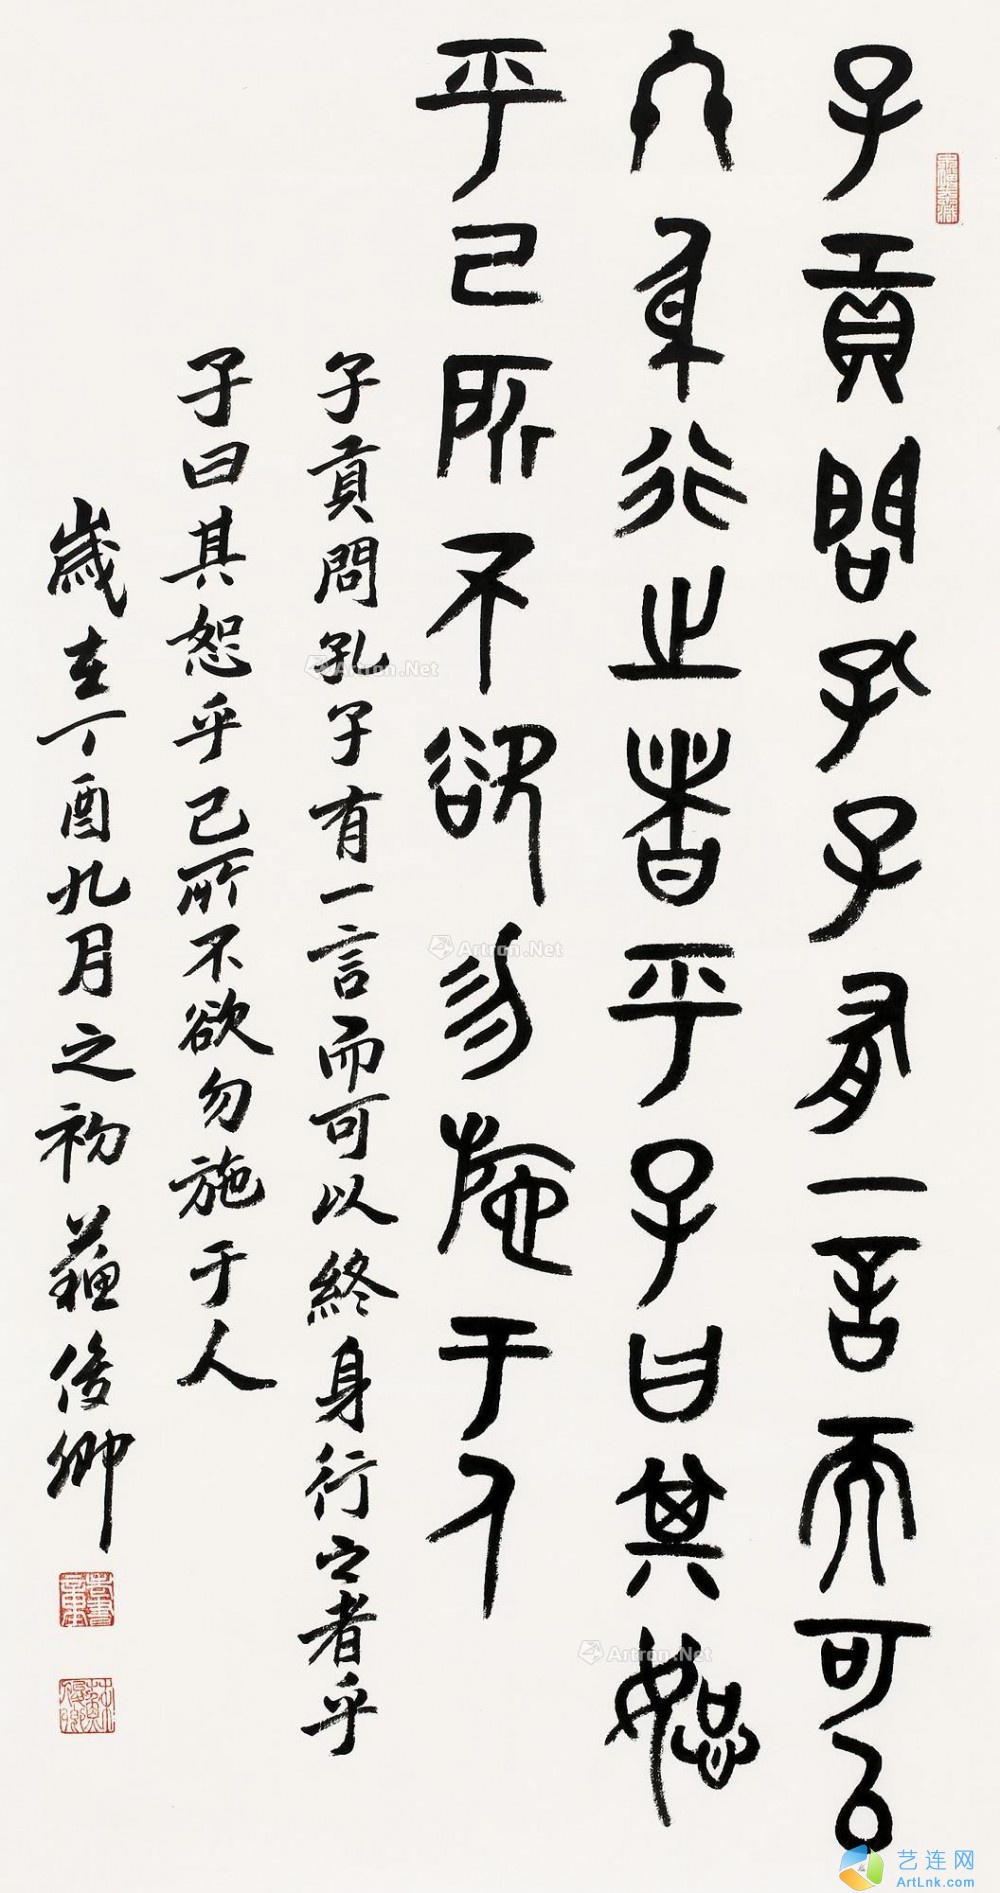 子貢問孔子有一言而可以
終身行之者乎子曰其恕
乎己所不欲勿施于人
子貢問孔子有一言而可以終身行之者乎
子曰其恕乎己所不欲勿施于人
歲在丁酉九月之初蘇俊卿
Artron.Net
Artron.Net
Artron.Net
艺连网
ArtLnk.com